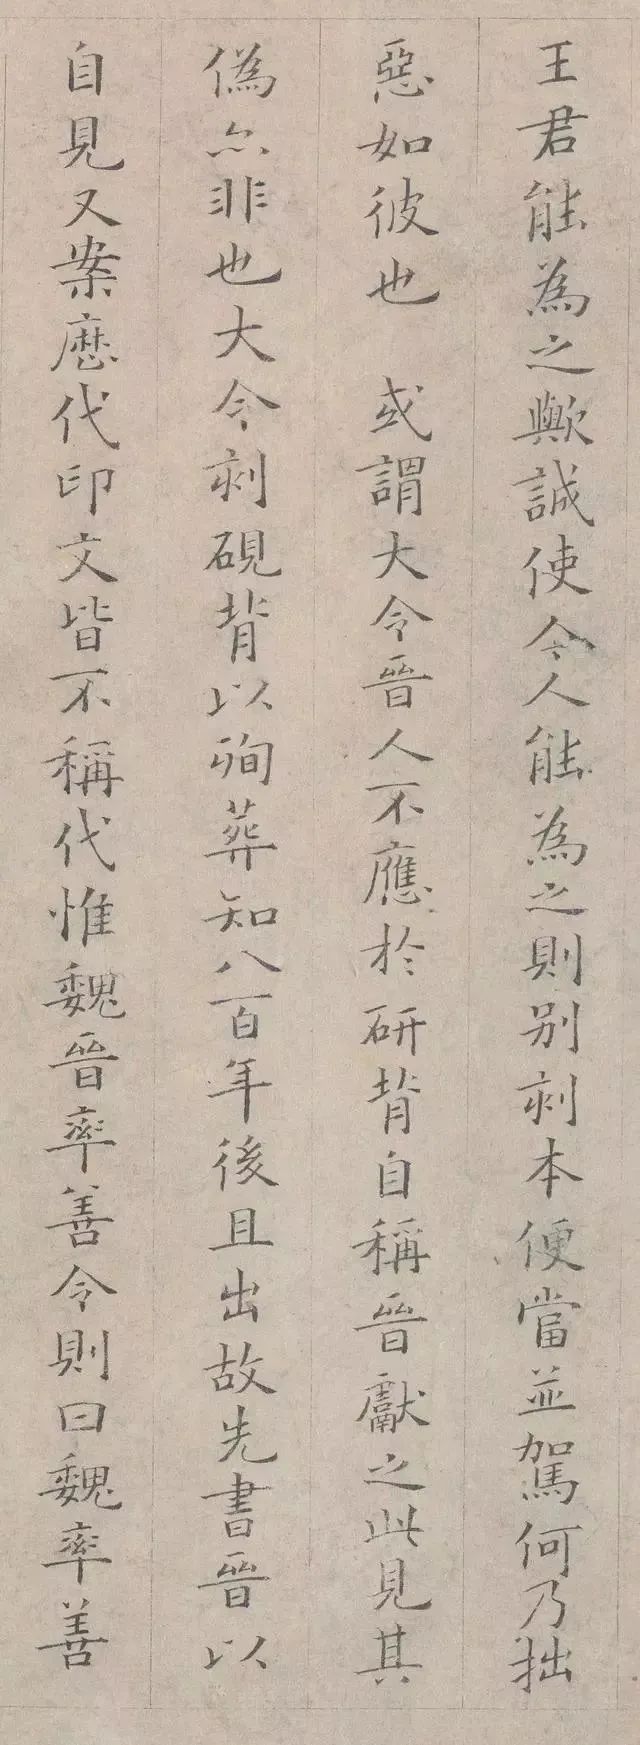 王君能為之歟誠使令人能為之則別刻本便當並駕何乃拙
惡如彼也 或謂大令晉人不應於研背自稱晉獻之此見其
偽亦非也大令刻硯背以殉葬知八百年後且出故先書晉以
自見又案歷代印文皆不稱代惟魏晉率善令則曰魏率善